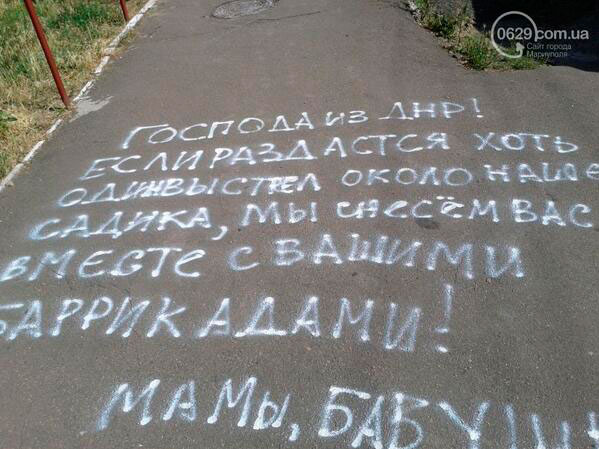 0629 com.ua
Сайт города
Мариуполя
ГОСПОДА ИЗ ДНР!
ЕСЛИ РАЗДАСТСЯ ХОТЬ
ОДИН ВЫСТРЕЛ ОКОЛО НАШЕ
САДИКА, МЫ СНЕСЁМ ВАС
ВМЕСТЕ С ВАШИМИ
БАРРИКАДАМИ!
МАМЫ, БАБУШ